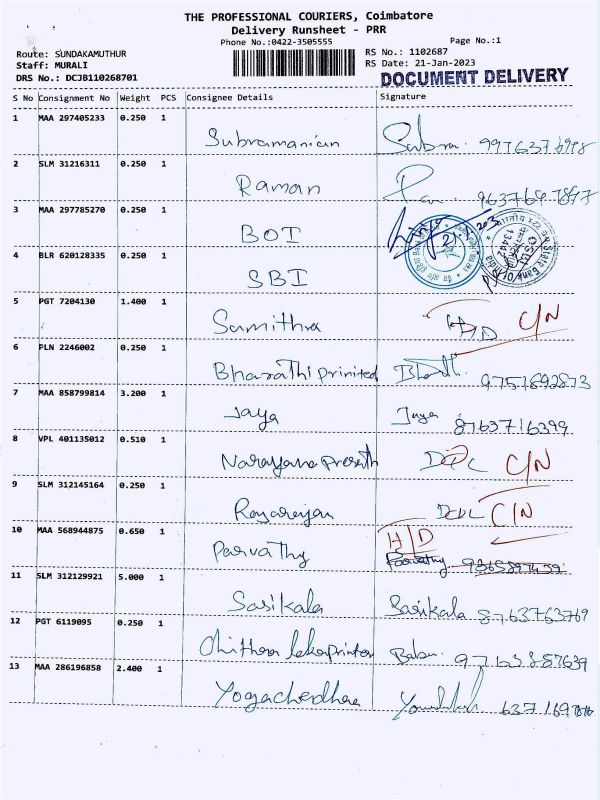 THE PROFESSIONAL COURIERS, Coimbatore
Delivery Runsheet - PRR
Phone No.:0422-3505555
Page No.:1
Route: SUNDAKAMUTHUR
RS No.: 1102687
Staff: MURALI
RS Date: 21-Jan-2023
DRS No.: DCJB110268701
DOCUMENT DELIVERY
S No Consignment No Weight PCS Consignee Details Signature
1 MAA 297405233 0.250 1
Subramanian
2 SLM 31216311 0.250 1
Raman
3 MAA 297785270 0.250 1
BOI
4 BLR 620128335 0.250 1
SBI
5 PGT 7204130 1.400 1
Sumithra H/D C/N
6 PLN 2246002 0.250 1
Bharathi prinited 9751692873
7 MAA 858799814 3.200 1
Jaya Jaya 8763716399
8 VPL 401135012 0.510 1
C/N
9 SLM 312145164 0.250 1
C/N
10 MAA 568944875 0.650 1 H/D
Parvathy Parvathy
11 SLM 312129921 5.000 1
Sasikala Sasikala 8763763769
12 PGT 6119095 0.250 1
Babu.
13 MAA 286196858 2.400 1